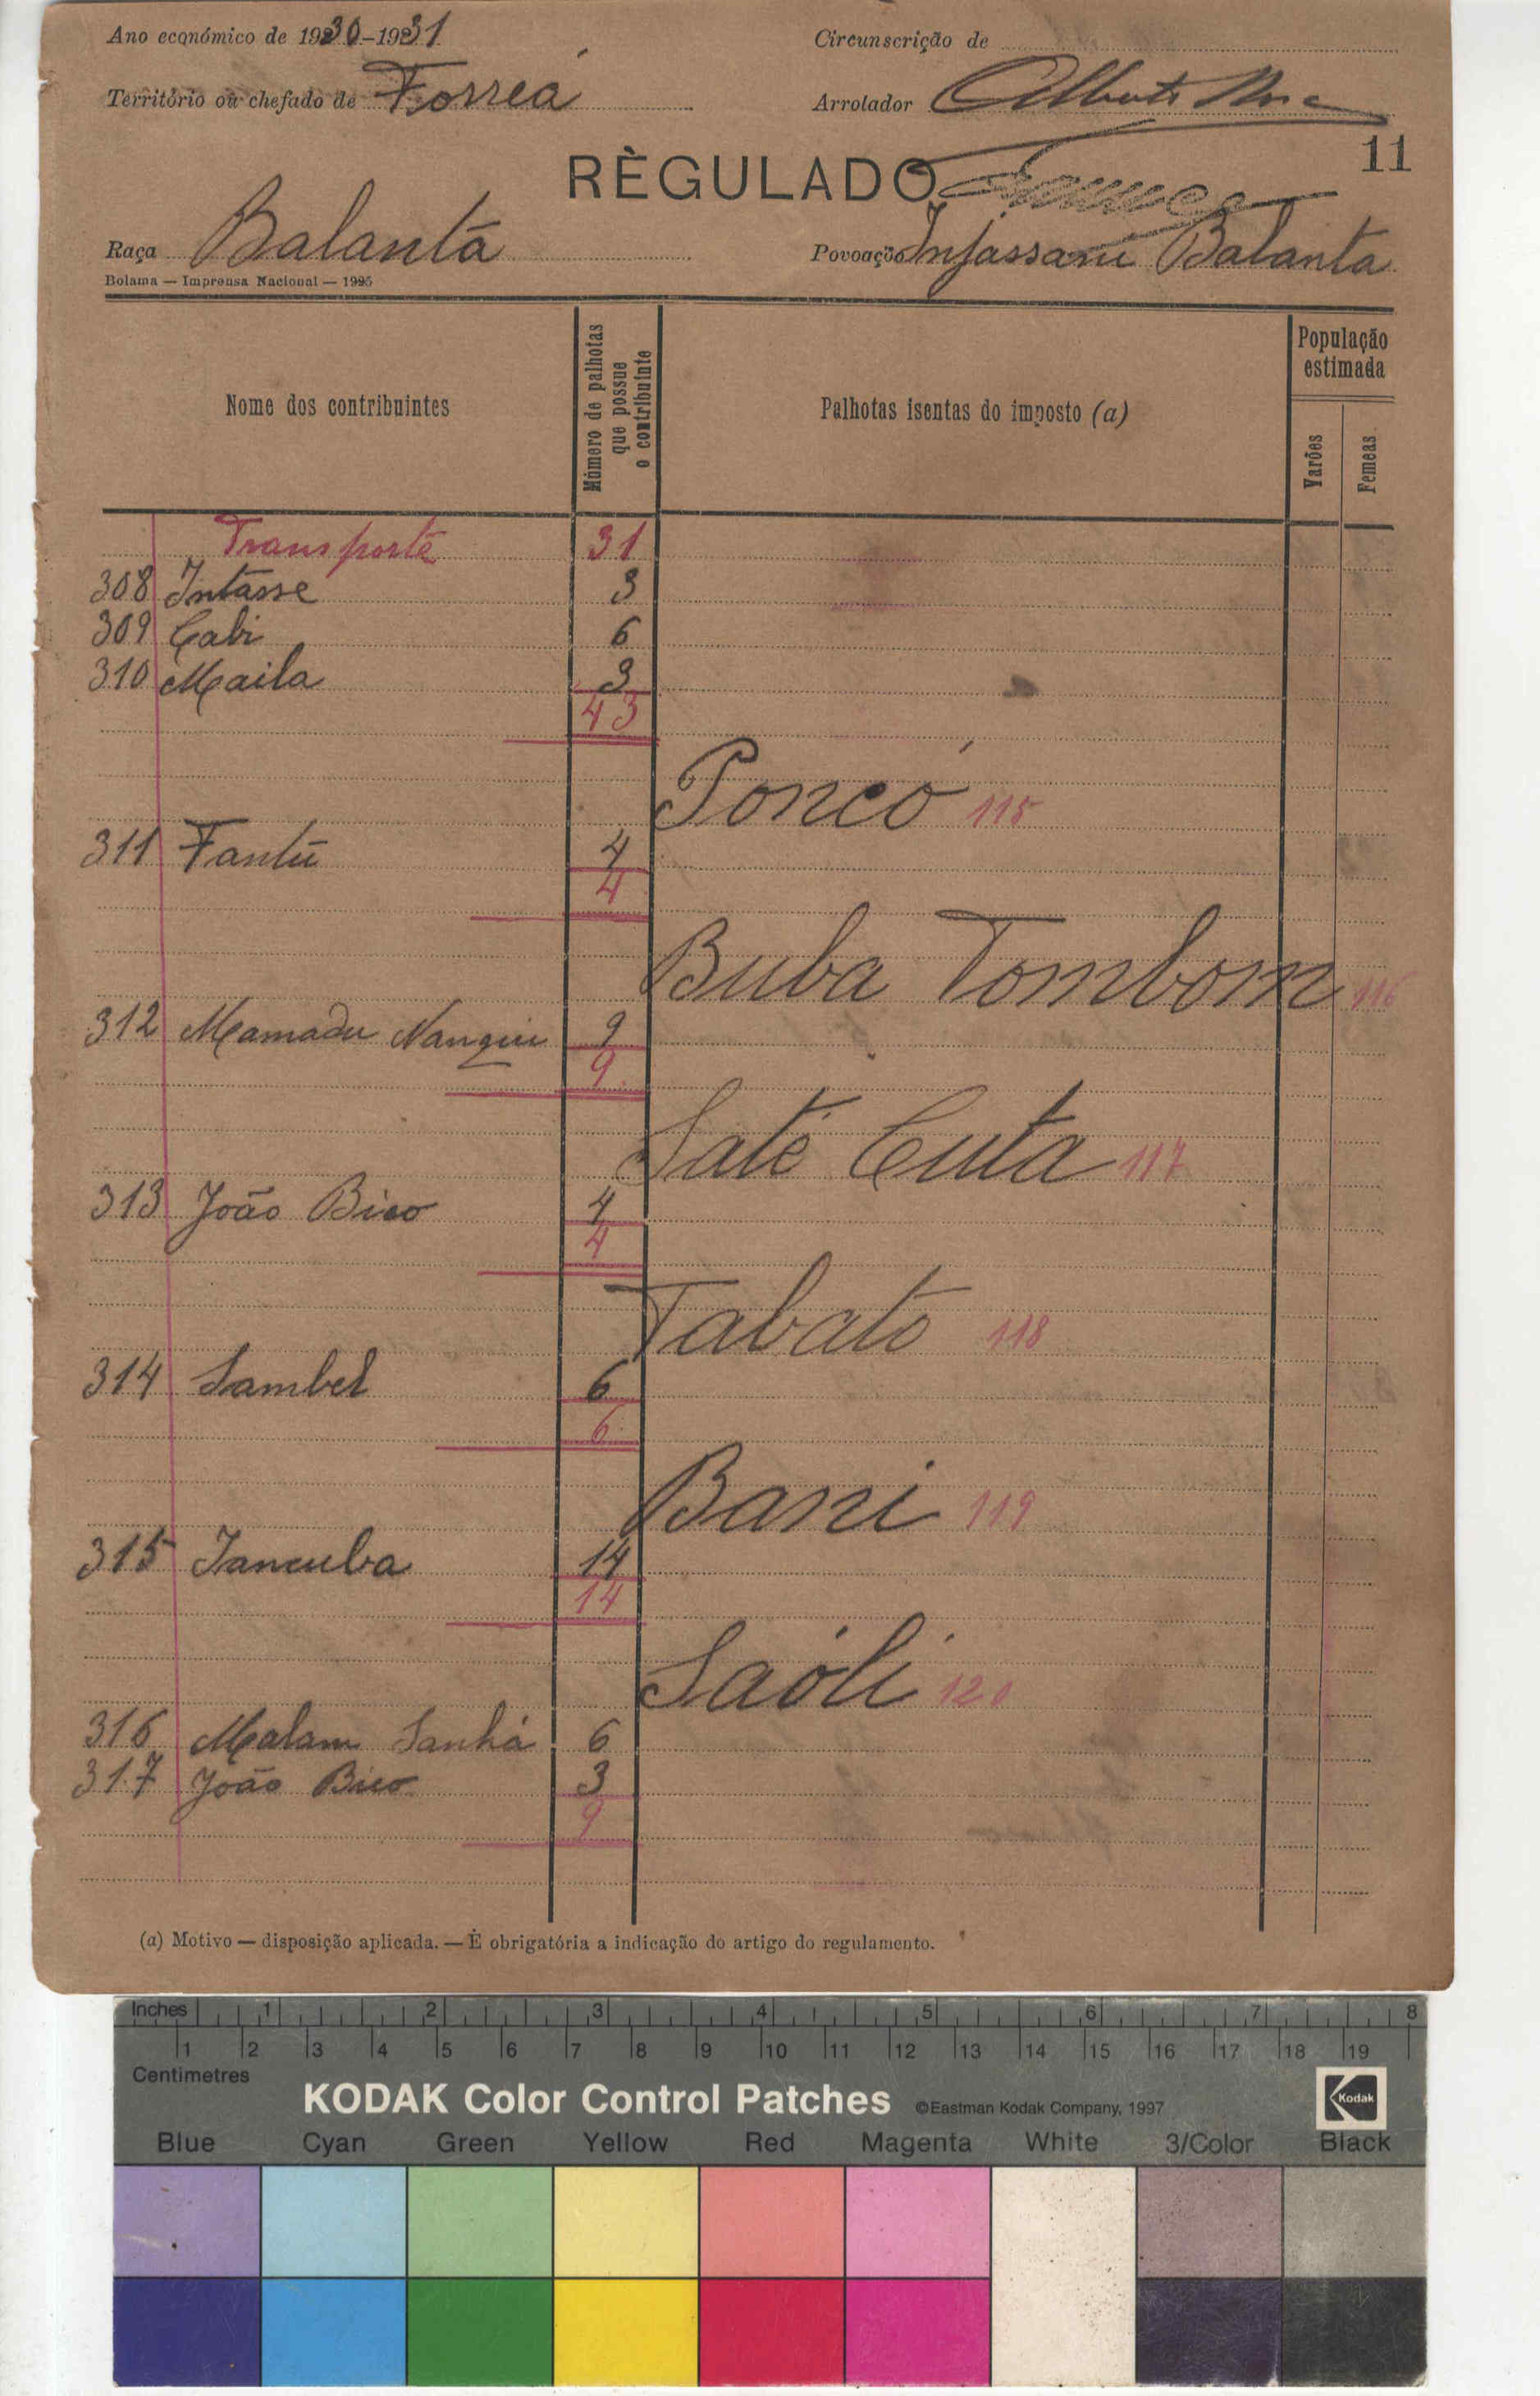 Ano económico de 1930-1931
Circunscrição de
Território ou chefado de Forreá
Arrolador Alberto
11
RÈGULADO
Raça Balanta
Povoação Injassane Balanta
Bolama — Imprensa Nacional — 1925
Nome dos contribuintes
Número de palhotas que possue o contribuinte
Palhotas isentas do imposto (a)
População estimada
Varões
Femeas
Transporte 31
308 Intasse 3
309 Cabi 6
310 Maila 3
43
Poncó 115
311 Fantú 4
4
Buba Tombom 116
312 Mamadu Nanqui 9
9
Saté Cuta 117
313 João Bico 4
4
Tabato 118
314 Sambel 6
6
Bani 119
315 Iancuba 14
14
Saóli 120
316 Malam Sanhá 6
317 João Bico 3
9
(a) Motivo — disposição aplicada. — É obrigatória a indicação do artigo do regulamento.
Inches 1 2 3 4 5 6 7 8
1 2 3 4 5 6 7 8 9 10 11 12 13 14 15 16 17 18 19
Centimetres
KODAK Color Control Patches ©Eastman Kodak Company, 1997 Kodak
Blue Cyan Green Yellow Red Magenta White 3/Color Black